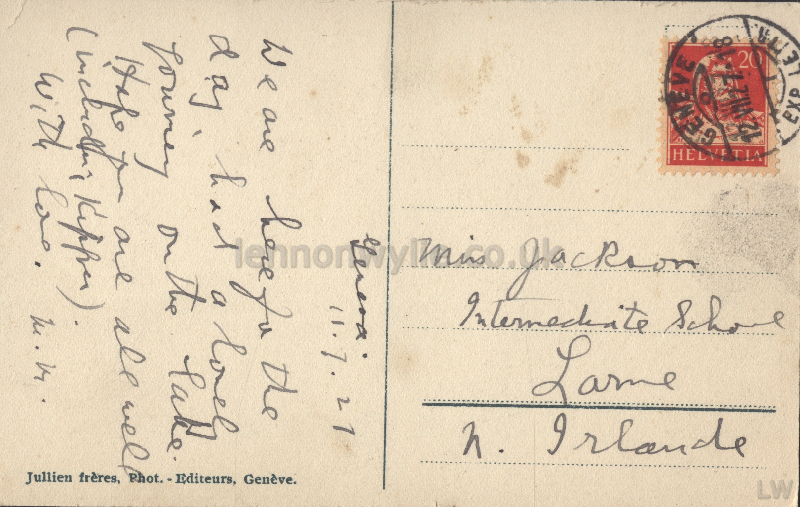 Geneva.
11.7.27
We are here for the
day, had a lovely
journey on the lake.
Hope you are all well
(including Kipper).
With love. M.M.
Miss Jackson
Intermediate School
Larne
N. Irlande
20
HELVETIA
GENÈVE
EXP. LETTR.
Jullien frères, Phot. - Editeurs, Genève.
lennonwylie.co.uk
LW